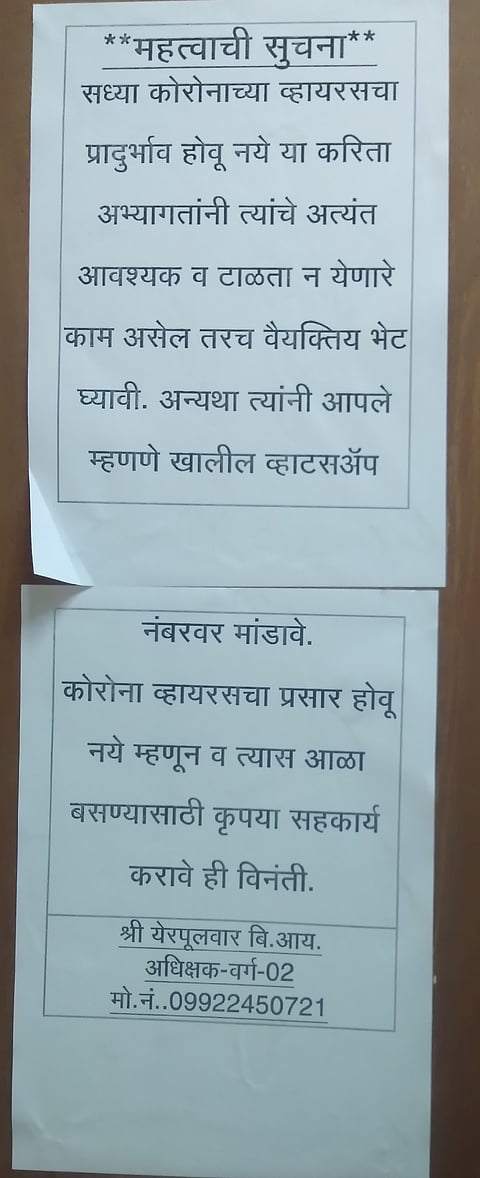 **महत्वाची सुचना**
सध्या कोरोनाच्या व्हायरसचा
प्रादुर्भाव होवू नये या करिता
अभ्यागतांनी त्यांचे अत्यंत
आवश्यक व टाळता न येणारे
काम असेल तरच वैयक्तिय भेट
घ्यावी. अन्यथा त्यांनी आपले
म्हणणे खालील व्हाटसॲप
नंबरवर मांडावे.
कोरोना व्हायरसचा प्रसार होवू
नये म्हणून व त्यास आळा
बसण्यासाठी कृपया सहकार्य
करावे ही विनंती.
श्री येरपूलवार बि.आय.
अधिक्षक-वर्ग-02
मो.नं..09922450721